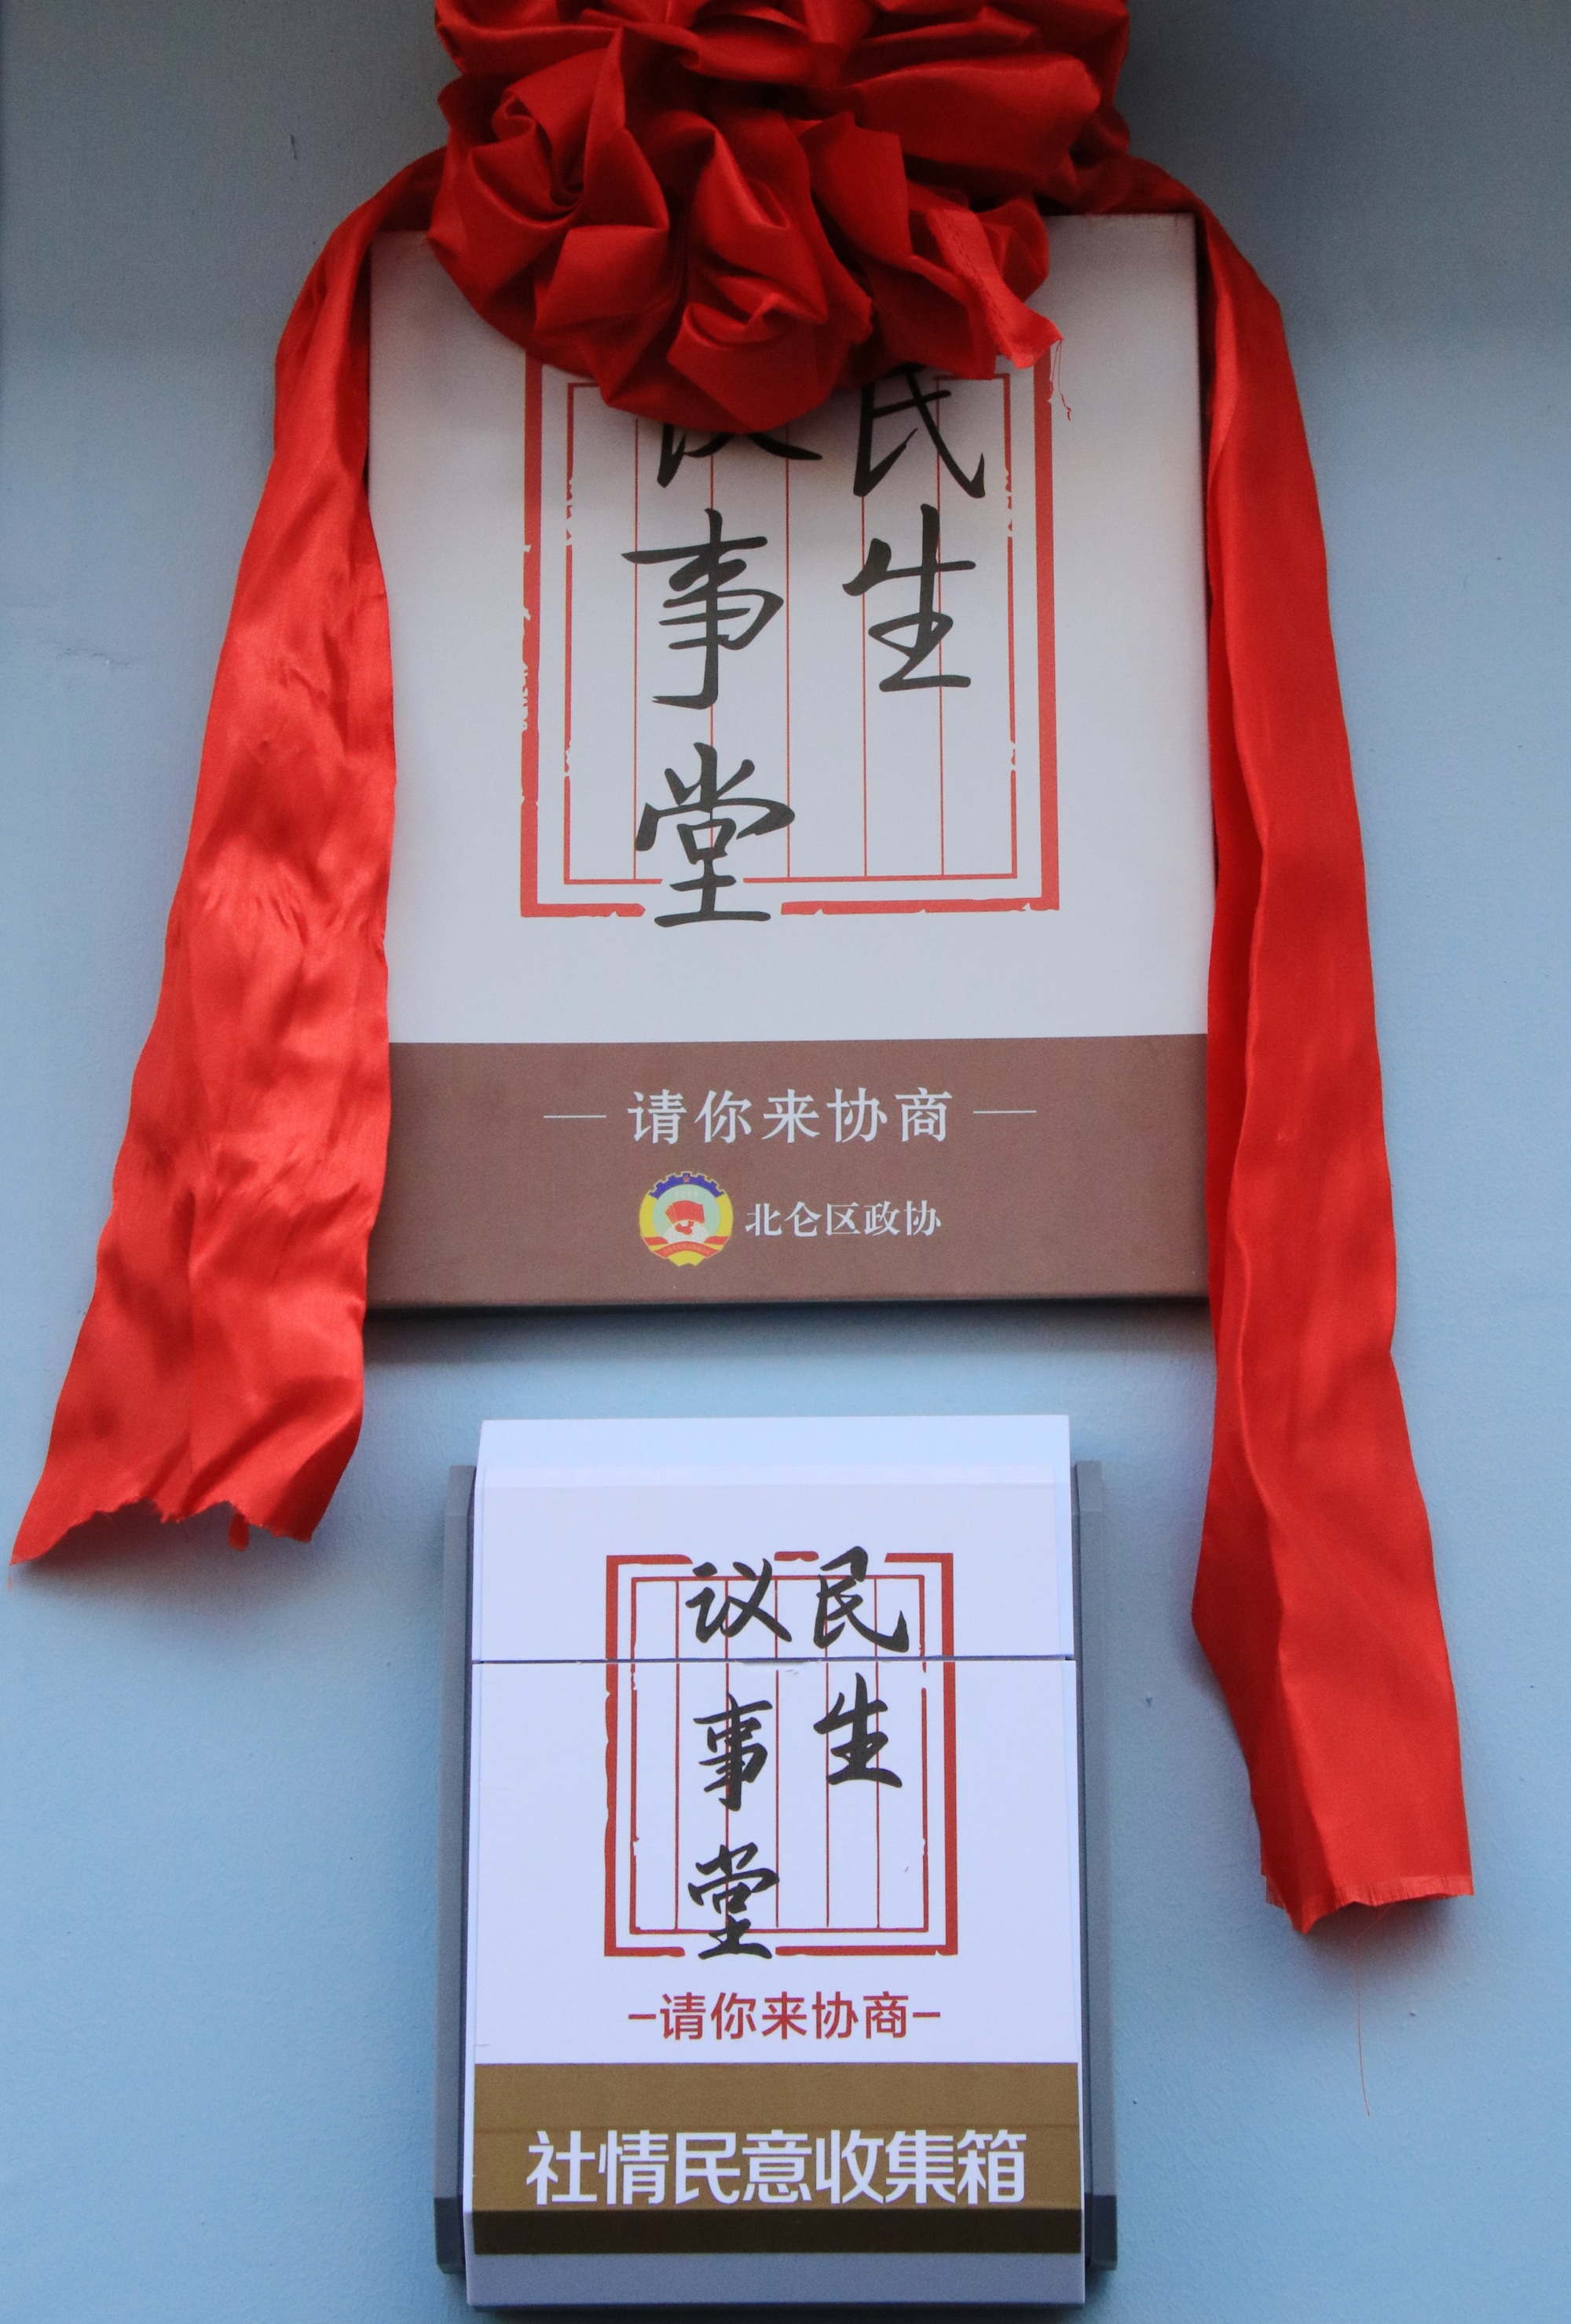 民生
议事堂
请你来协商
北仑区政协
民生
议事堂
-请你来协商-
社情民意收集箱